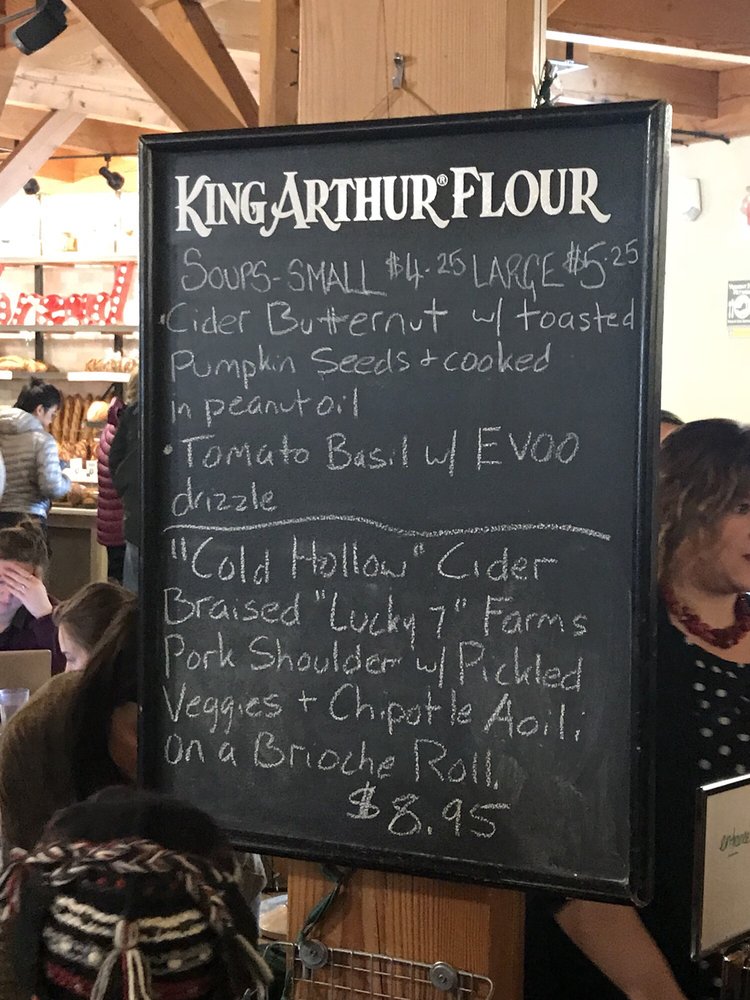 KING ARTHUR® FLOUR
SOUPS-SMALL $4.25 LARGE $5.25
•Cider Butternut w/ toasted
Pumpkin Seeds + cooked
in peanut oil
•Tomato Basil w/ EVOO
drizzle
"Cold Hollow" Cider
Braised "Lucky 7" Farms
Pork Shoulder w/ Pickled
Veggies + Chipotle Aoili
on a Brioche Roll.
$8.95